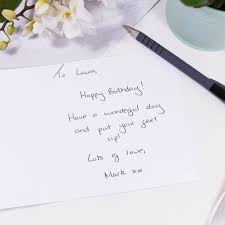 To Laura,
Happy Birthday!
Have a wonderful day
and put your feet
up!
Lots of love,
Mark xx